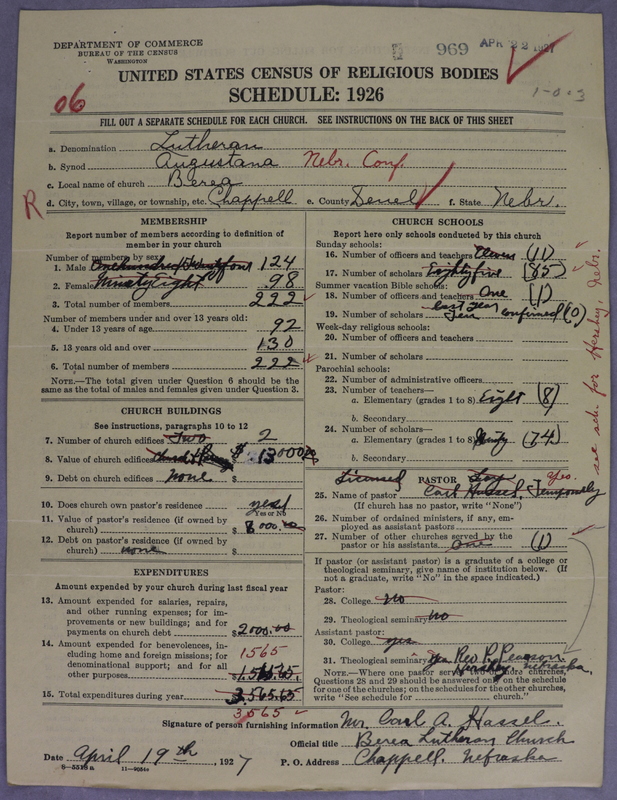 DEPARTMENT OF COMMERCE
BUREAU OF THE CENSUS
WASHINGTON
969 APR 22 1927
UNITED STATES CENSUS OF RELIGIOUS BODIES
SCHEDULE: 1926
06
1-0-3
FILL OUT A SEPARATE SCHEDULE FOR EACH CHURCH. SEE INSTRUCTIONS ON THE BACK OF THIS SHEET
a. Denomination Lutheran
b. Synod Augustana Nebr. Conf.
c. Local name of church Berea
R
d. City, town, village, or township, etc. Chappell e. County Deuel f. State Nebr.
MEMBERSHIP
Report number of members according to definition of
member in your church
Number of members by sex:
1. Male 124
2. Female Ninety Eight 98
3. Total number of members 222
Number of members under and over 13 years old:
4. Under 13 years of age 92
5. 13 years old and over 130
6. Total number of members 222
NOTE.—The total given under Question 6 should be the
same as the total of males and females given under Question 3.
CHURCH BUILDINGS
See instructions, paragraphs 10 to 12
7. Number of church edifices Two 2
8. Value of church edifices $ 13000.00
9. Debt on church edifices none $
10. Does church own pastor's residence yes
Yes or No
11. Value of pastor's residence (if owned by
church) $ 8000.00
12. Debt on pastor's residence (if owned by
church) none $
EXPENDITURES
Amount expended by your church during last fiscal year
13. Amount expended for salaries, repairs,
and other running expenses; for im-
provements or new buildings; and for
payments on church debt $ 2000.00
14. Amount expended for benevolences, in-
cluding home and foreign missions; for
denominational support; and for all
other purposes 1565
15. Total expenditures during year 3,565.65
3,565
CHURCH SCHOOLS
Report here only schools conducted by this church
Sunday schools:
16. Number of officers and teachers Eleven (11)
17. Number of scholars Eighty five (85)
Summer vacation Bible schools:
18. Number of officers and teachers One (1)
19. Number of scholars last year Ten confirmed (0)
Week-day religious schools:
20. Number of officers and teachers
21. Number of scholars
Parochial schools:
22. Number of administrative officers
23. Number of teachers—
a. Elementary (grades 1 to 8) Eight (8)
b. Secondary
24. Number of scholars—
a. Elementary (grades 1 to 8) (74)
b. Secondary
see sch. for Hershey, Nebr.
Licensed PASTOR Yes.
25. Name of pastor Carl Hassel, Temporarily
(If church has no pastor, write "None")
26. Number of ordained ministers, if any, em-
ployed as assistant pastors
27. Number of other churches served by the
pastor or his assistants One (1)
If pastor (or assistant pastor) is a graduate of a college or
theological seminary, give name of institution below. (If
not a graduate, write "No" in the space indicated.)
Pastor:
28. College no
29. Theological seminary no
Assistant pastor:
30. College yes
31. Theological seminary yes Rev P. Pearson
Hershey, Nebraska.
NOTE.—Where one pastor serves two or more churches,
Questions 28 and 29 should be answered only on the schedule
for one of the churches; on the schedules for the other churches,
write "See schedule for church."
Signature of person furnishing information Mr. Carl A. Hassel.
Official title Berea Lutheran Church
Date April 19th, 1927 P. O. Address Chappell, Nebraska
8—5518a 11—9054a